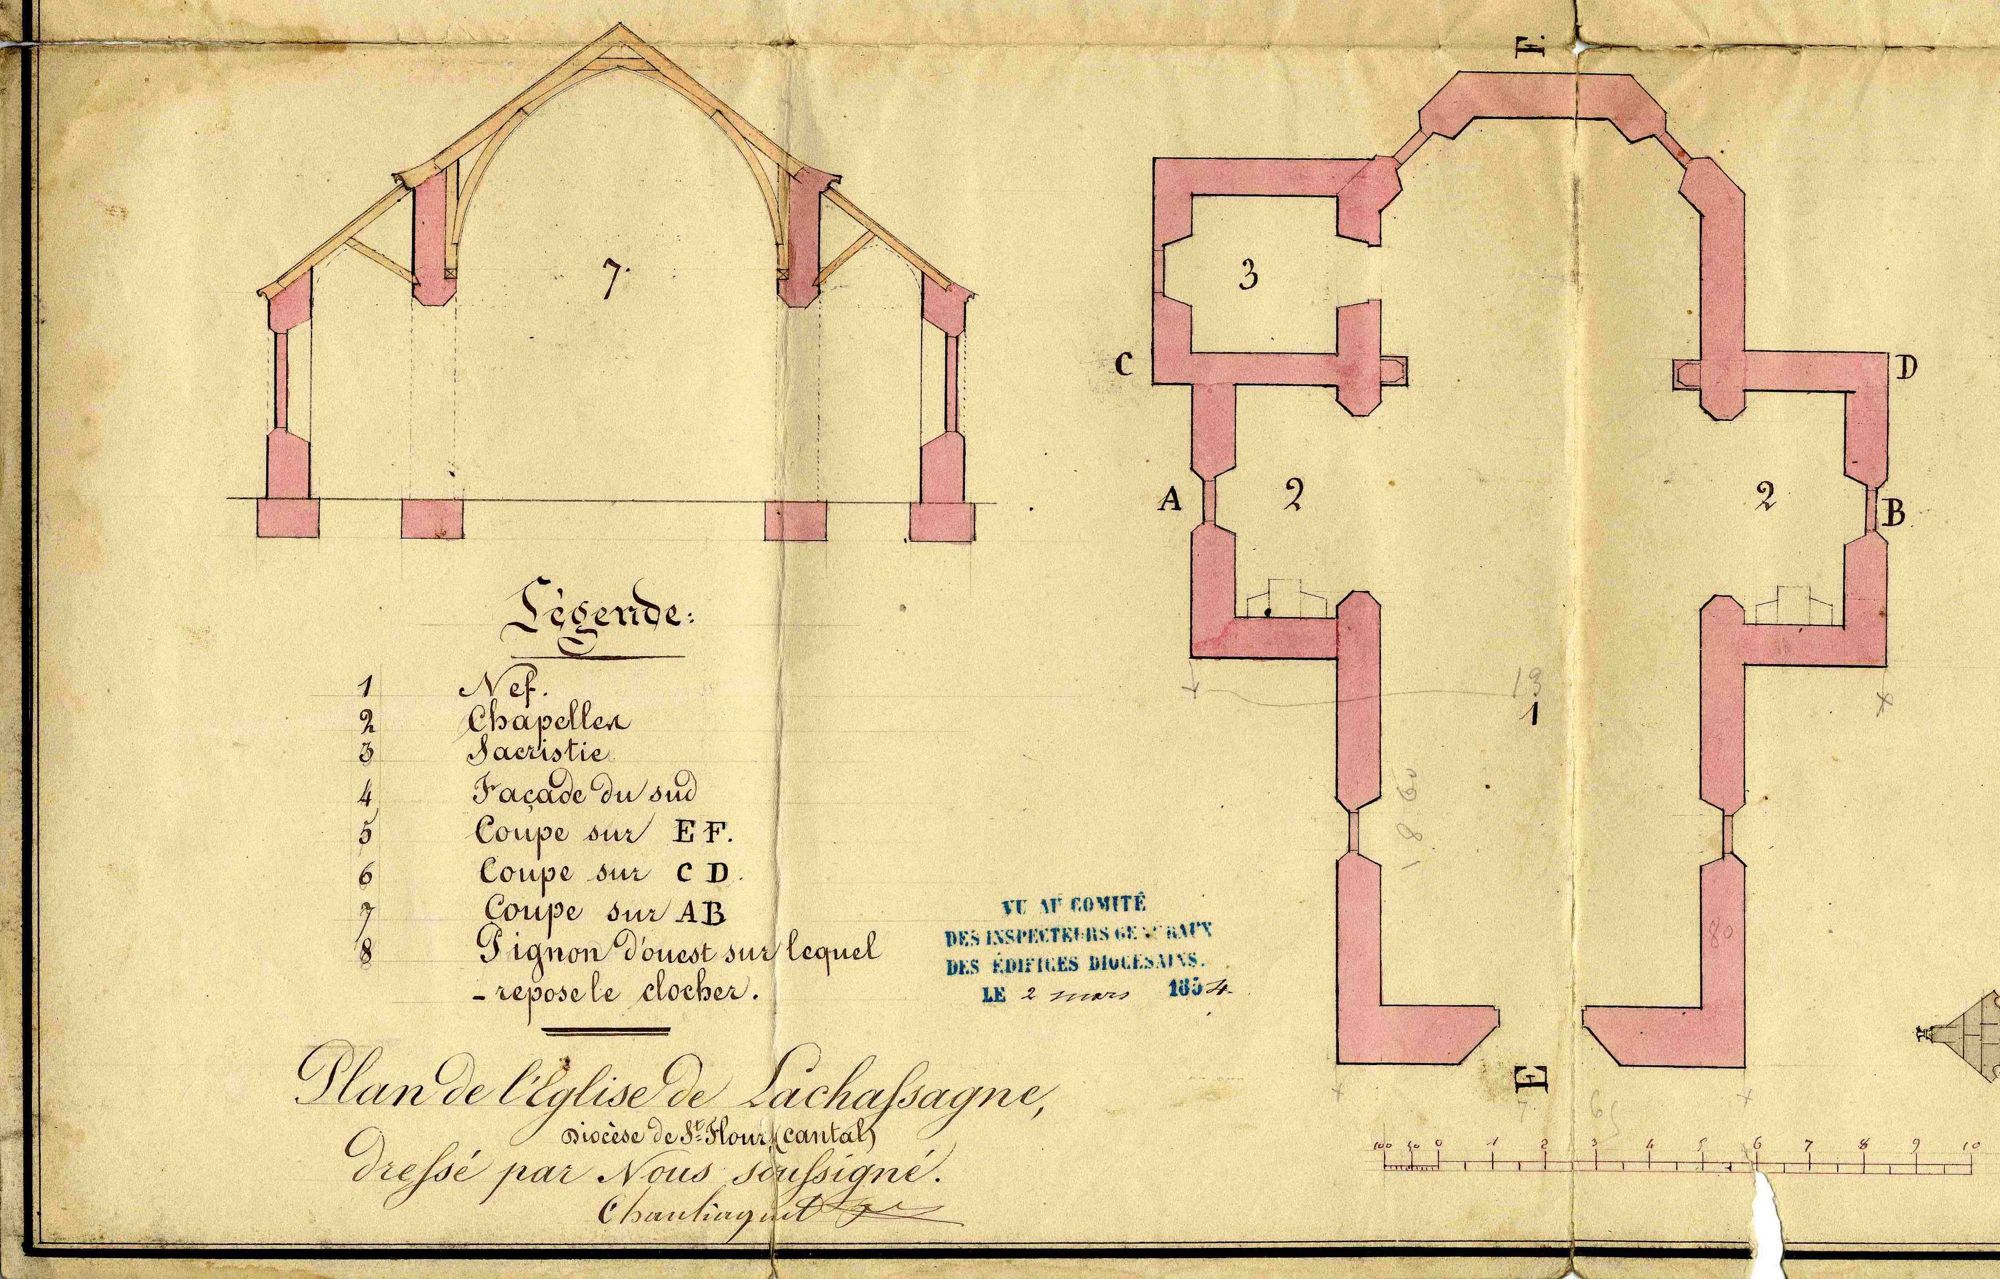 7.
F.
3
C
D
A
2
2
B
Légende:
1 Nef.
2 Chapelles
3 Sacristie
4 Façade du sud
5 Coupe sur E F.
6 Coupe sur C D.
7 Coupe sur A B
8 Pignon d'ouest sur lequel
- repose le clocher.
13
1
18 60
80
VU AU COMITÉ
DES INSPECTEURS GENERAUX
DES ÉDIFICES DIOCESAINS.
LE 2 mars 1854.
E
Plan de l'Église de Lachassagne,
Diocèse de St. Flour, (cantal)
dressé par Nous soussigné.
100 50 0 1 2 3 4 5 6 7 8 9 10